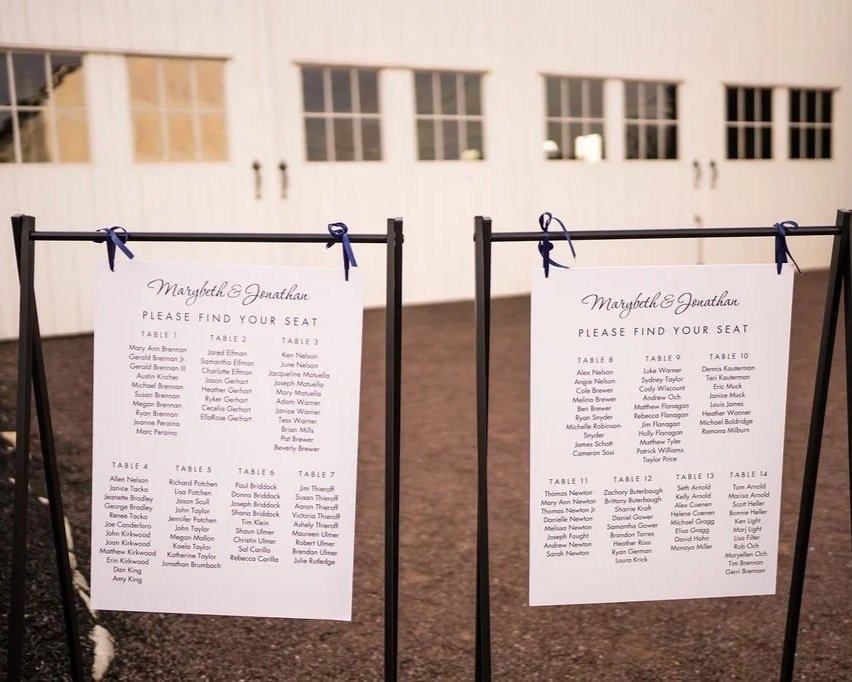 Marybeth & Jonathan
PLEASE FIND YOUR SEAT
TABLE 1
Mary Ann Brennan
Gerald Brennan Jr.
Gerald Brennan III
Austin Kircher
Michael Brennan
Susan Brennan
Megan Brennan
Ryan Brennan
Joanne Peraino
Marc Peraino
TABLE 2
Jared Elfman
Samantha Elfman
Charlotte Elfman
Jason Gerhart
Heather Gerhart
Ryker Gerhart
Cecelia Gerhart
EllaRose Gerhart
TABLE 3
Ken Nelson
June Nelson
Jacqueline Matuella
Joseph Matuella
Mary Matuella
Adam Warner
Janice Warner
Tess Warner
Brian Mills
Pat Brewer
Beverly Brewer
TABLE 4
Allen Nelson
Janice Tacka
Jeanette Bradley
George Bradley
Renee Tacka
Joe Canderloro
Joan Kirkwood
John Kirkwood
Matthew Kirkwood
Erin Kirkwood
Dan King
Amy King
TABLE 5
Richard Potchen
Lisa Potchen
Jason Scull
John Taylor
Jennifer Patchen
John Taylor
Megan Mallon
Kaela Taylor
Katherine Taylor
Jonathan Brumbach
TABLE 6
Paul Briddock
Donna Briddock
Joseph Briddock
Shana Briddock
Tim Klein
Shaun Ulmer
Christin Ulmer
Sal Carilla
Rebecca Carilla
TABLE 7
Jim Thieroff
Susan Thieroff
Aaron Thieroff
Victoria Thieroff
Ashely Thieroff
Maureen Ulmer
Robert Ulmer
Brendan Ulmer
Julie Rutledge
Marybeth & Jonathan
PLEASE FIND YOUR SEAT
TABLE 8
Alex Nelson
Angie Nelson
Cole Brewer
Melina Brewer
Ben Brewer
Ryan Snyder
Michelle Robinson-
Snyder
James Schott
Cameron Sosi
TABLE 9
Luke Warner
Sydney Taylor
Cody Wiscount
Andrew Och
Matthew Flanagan
Rebecca Flanagan
Jim Flanagan
Holly Flanagan
Matthew Tyler
Patrick Williams
Taylor Price
TABLE 10
Dennis Kauterman
Teri Kauterman
Eric Muck
Janice Muck
Louis James
Heather Wanner
Michael Boldridge
Ramona Milburn
TABLE 11
Thomas Newton
Mary Ann Newton
Thomas Newton Jr
Danielle Newton
Melissa Newton
Joseph Fought
Andrew Newton
Sarah Newton
TABLE 12
Zachary Buterbaugh
Brittany Buterbaugh
Sharrie Kraft
Daniel Gower
Samantha Gower
Brandon Torres
Heather Ross
Ryan German
Laura Krick
TABLE 13
Seth Arnold
Kelly Arnold
Alex Coenen
Helene Coenen
Michael Gragg
Elisa Gragg
David Hahn
Monaya Miller
TABLE 14
Tom Arnold
Marisa Arnold
Scott Heller
Bonnie Heller
Ken Light
Marj Light
Lisa Filter
Rob Och
Maryellen Och
Tim Brennan
Gerri Brennan